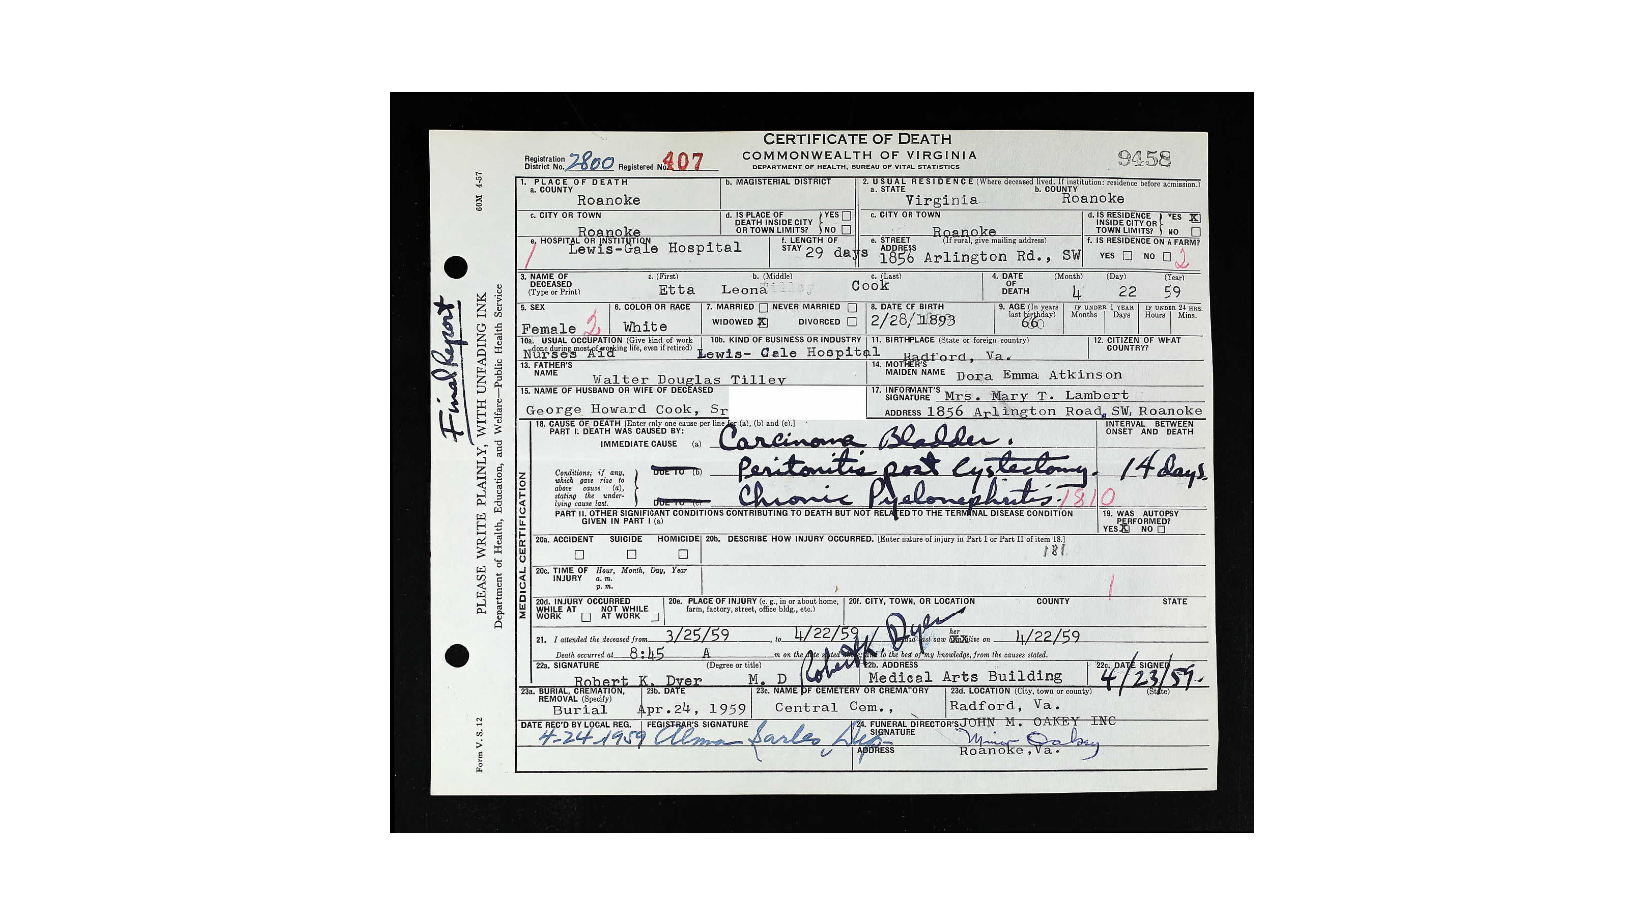 CERTIFICATE OF DEATH
COMMONWEALTH OF VIRGINIA
DEPARTMENT OF HEALTH, BUREAU OF VITAL STATISTICS
Registration District No. 2800 Registered No. 407
9458
1. PLACE OF DEATH
a. COUNTY
Roanoke
b. MAGISTERIAL DISTRICT
2. USUAL RESIDENCE (Where deceased lived. If institution: residence before admission.)
a. STATE
Virginia
b. COUNTY
Roanoke
c. CITY OR TOWN
Roanoke
d. IS PLACE OF DEATH INSIDE CITY OR TOWN LIMITS? YES NO
c. CITY OR TOWN
Roanoke
d. IS RESIDENCE INSIDE CITY OR TOWN LIMITS? YES X NO
e. HOSPITAL OR INSTITUTION
Lewis-Gale Hospital
f. LENGTH OF STAY 29 days
e. STREET ADDRESS (If rural, give mailing address)
1856 Arlington Rd., SW
f. IS RESIDENCE ON A FARM?
YES NO 2
3. NAME OF DECEASED (Type or Print)
a. (First) b. (Middle) c. (Last)
Etta Leona Cook
4. DATE OF DEATH (Month) (Day) (Year)
4 22 59
5. SEX
Female 2
6. COLOR OR RACE
White
7. MARRIED NEVER MARRIED
WIDOWED X DIVORCED
8. DATE OF BIRTH
2/28/1893
9. AGE (In years last birthday)
66
IF UNDER 1 YEAR Months Days
IF UNDER 24 HRS. Hours Mins.
10a. USUAL OCCUPATION (Give kind of work done during most of working life, even if retired)
Nurses Aid
10b. KIND OF BUSINESS OR INDUSTRY
Lewis- Gale Hospital
11. BIRTHPLACE (State or foreign country)
Radford, Va.
12. CITIZEN OF WHAT COUNTRY?
13. FATHER'S NAME
Walter Douglas Tilley
14. MOTHER'S MAIDEN NAME Dora Emma Atkinson
15. NAME OF HUSBAND OR WIFE OF DECEASED
George Howard Cook, Sr
17. INFORMANT'S SIGNATURE Mrs. Mary T. Lambert
ADDRESS 1856 Arlington Road, SW, Roanoke
MEDICAL CERTIFICATION
18. CAUSE OF DEATH [Enter only one cause per line for (a), (b) and (c).]
PART I. DEATH WAS CAUSED BY:
INTERVAL BETWEEN ONSET AND DEATH
IMMEDIATE CAUSE (a) Carcinoma Bladder.
Conditions, if any, which gave rise to above cause (a), stating the underlying cause last.
DUE TO (b) Peritonitis post Cystectomy. 14 days.
DUE TO (c) Chronic Pyelonephritis. 1810
PART II. OTHER SIGNIFICANT CONDITIONS CONTRIBUTING TO DEATH BUT NOT RELATED TO THE TERMINAL DISEASE CONDITION GIVEN IN PART I (a)
19. WAS AUTOPSY PERFORMED?
YES X NO
20a. ACCIDENT SUICIDE HOMICIDE
20b. DESCRIBE HOW INJURY OCCURRED. [Enter nature of injury in Part I or Part II of item 18.]
181
20c. TIME OF INJURY Hour, Month, Day, Year
a. m.
p. m.
20d. INJURY OCCURRED
WHILE AT WORK NOT WHILE AT WORK
20e. PLACE OF INJURY (e. g., in or about home, farm, factory, street, office bldg., etc.)
20f. CITY, TOWN, OR LOCATION COUNTY STATE
21. I attended the deceased from 3/25/59, to 4/22/59 and last saw her alive on 4/22/59
Death occurred at 8:45 A m on the date stated above; and to the best of my knowledge, from the causes stated.
22a. SIGNATURE (Degree or title)
Robert K. Dyer M. D
Robert K. Dyer
22b. ADDRESS
Medical Arts Building
22c. DATE SIGNED
4/23/59.
23a. BURIAL, CREMATION, REMOVAL (Specify)
Burial
23b. DATE
Apr.24, 1959
23c. NAME OF CEMETERY OR CREMATORY
Central Cem.,
23d. LOCATION (City, town or county) (State)
Radford, Va.
DATE REC'D BY LOCAL REG.
4-24-1959
REGISTRAR'S SIGNATURE
24. FUNERAL DIRECTOR'S SIGNATURE
JOHN M. OAKEY INC
ADDRESS
Roanoke,Va.
Final Report
60M 4-57
PLEASE WRITE PLAINLY, WITH UNFADING INK
Department of Health, Education, and Welfare—Public Health Service
Form V. S. 12